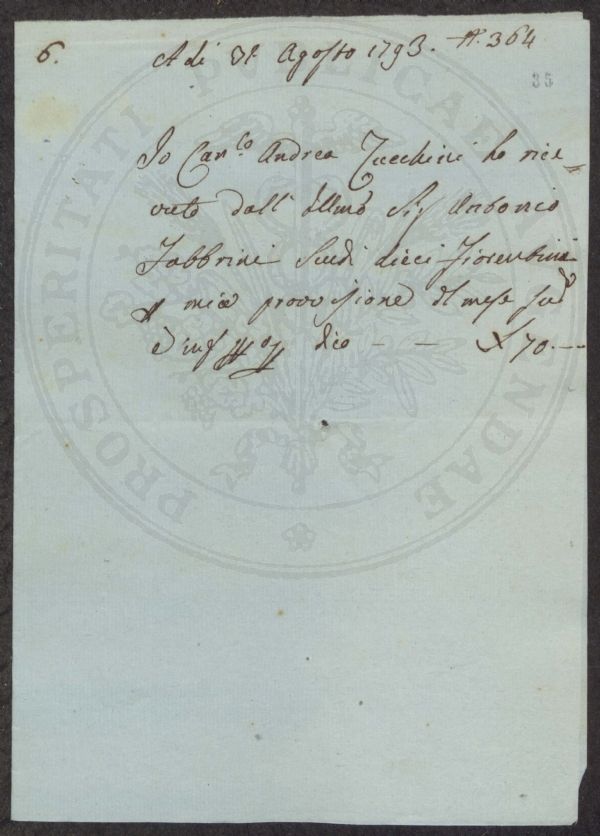 6.
A dì 31 Agosto 1793. N. 364
35
Io Can.co Andrea Zucchini ho rice=
vuto dall' Illmo Sig Antonio
Fabbrini Scudi dieci Fiorentini
mia provvisione mese
dico - - 70. --
PROSPERITATI PVBLICAE AVGENDAE